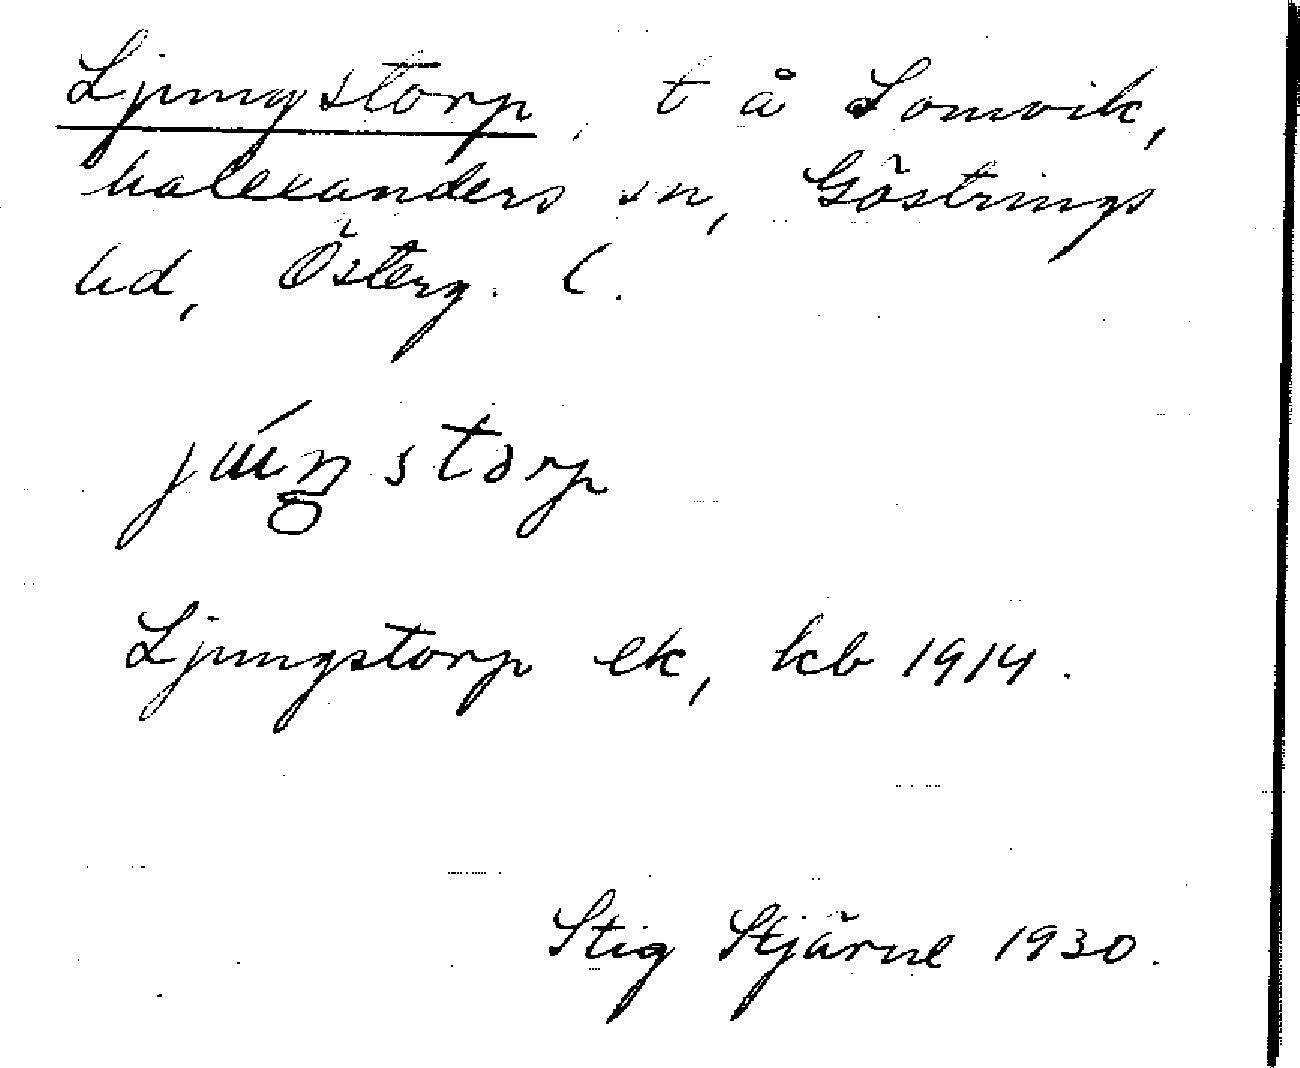 Ljungstorp, t å Somvik,
Malexanders sn, Göstrings
hd, Österg. l.
júŋstorp
Ljungstorp ek, kb 1914.
Stig Stjärne 1930.